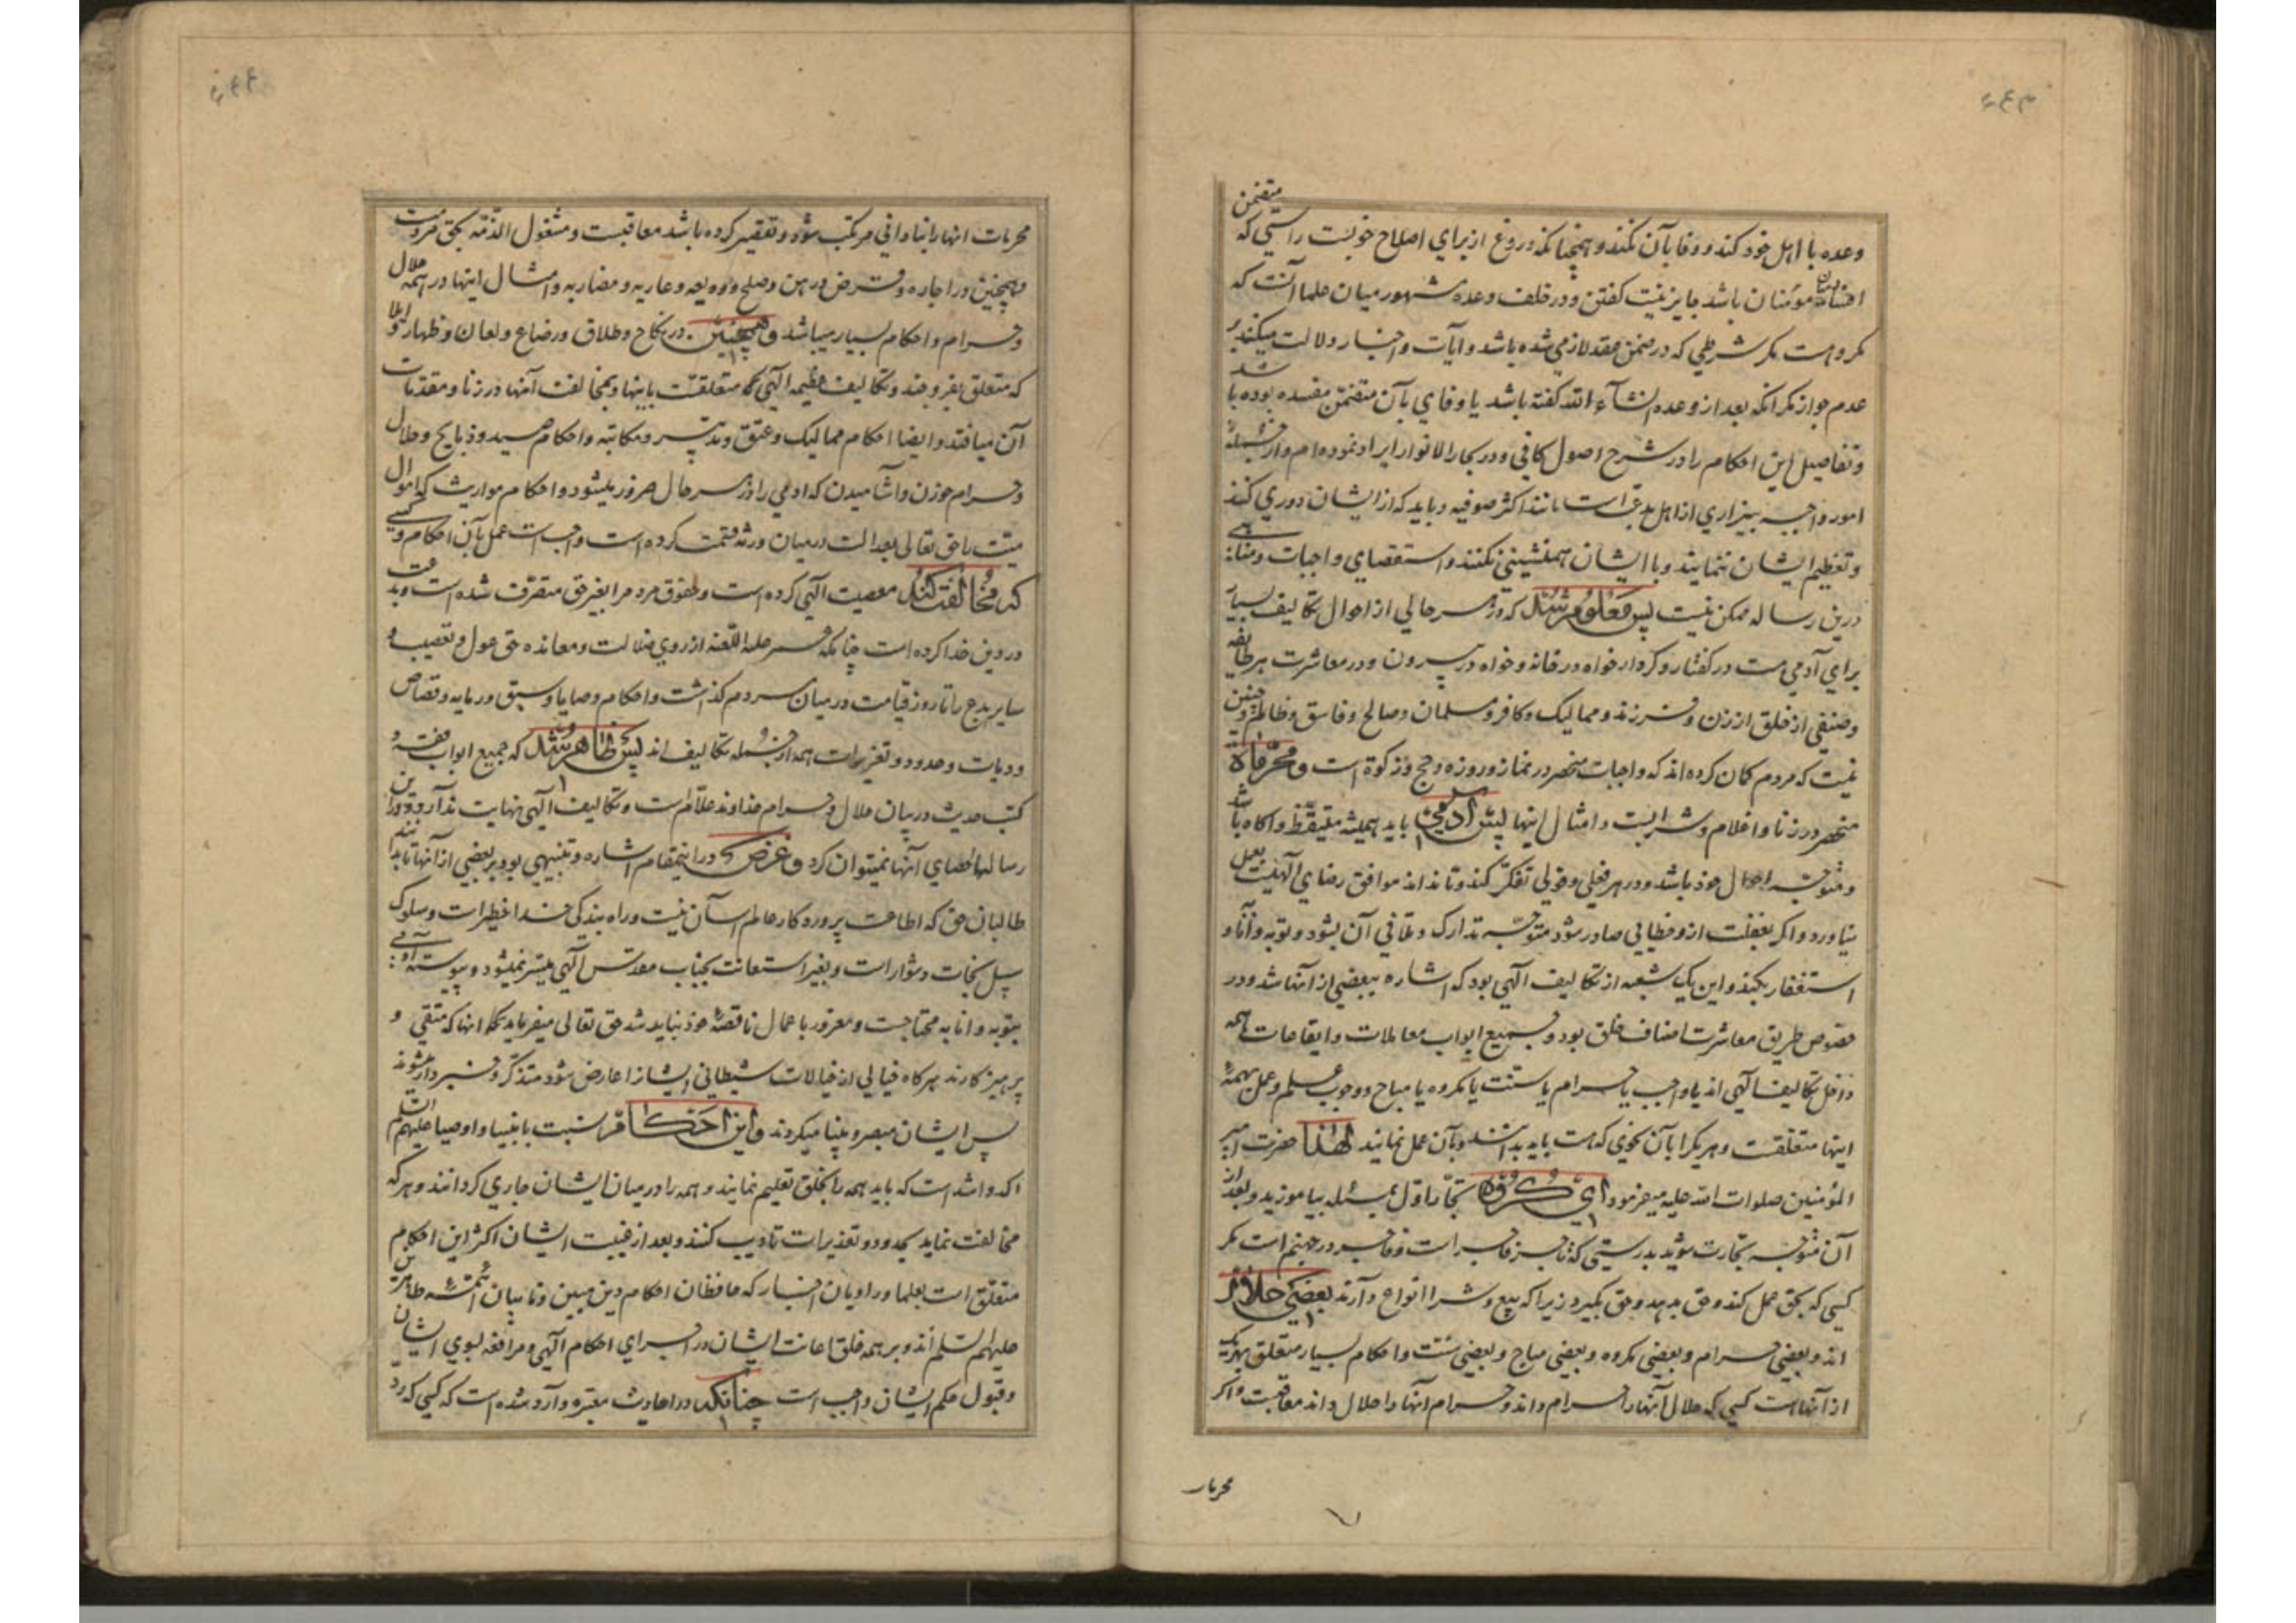 متضمن
وعده با اهل خود کند و وفا بآن نکند و همچنانکه دروغ از برای اصلاح خوبست راستی که
افساد میان مؤمنان باشد جایز نیست کفتن و در خلف وعده مشهور میان علما آنست که
مکروهست مکر شرطی که در ضمن عقد لازمی شده باشد و آیات و اخبار دلالت میکند بر
عدم جواز مکر انکه بعد از وعده انشآء الله کفته باشد یا وفای بآن متضمن مفسده بوده باشد
و تفاصیل این احکام را در شرح اصول کافی و در بحار الانوار ایراد نموده ام و از جملهٔ
امور واجبه بیزاری از اهل بدعتست مانند اکثر صوفیه و باید که از ایشان دوری کند
و تعظیم ایشان ننمایند و با ایشان همنشینی نکنند و استقصای واجبات و مناهی
درین رساله ممکن نیست پس معلوم شد که در هر حالی از احوال تکالیف بسیار
برای آدمی هست در کفتار و کردار خواه در خانه و خواه در بیرون و در معاشرت هر طایفه
و صنفی از خلق از زن و فرزند و ممالیک و کافر و مسلمان و صالح و فاسق و ظالم و چنین
نیست که مردم کمان کرده اند که واجبات منحصر در نماز و روزه و حج و زکوة است و محرمات
منحصر در زنا و اغلام و شرابست و امثال اینها پس آدمی باید همیشه متیقظ و آکاه باشد
و متوجه احوال خود باشد و در هر فعلی و قولی تفکر کند و تا نداند موافق رضای الهیست بعمل
نیاورد و اکر بغفلت ازو خطایی صادر شود متوجه تدارک و تلافی آن بشود و توبه و انابه و
استغفار بکند و این یک شعبه از تکالیف الهی بود که اشاره ببعضی از آنها شد و در
خصوص طریق معاشرت اصناف خلق بود و جمیع ابواب معاملات و ایقاعات همه
داخل تکالیف الهی اند یا واجب یا حرام یا سنت یا مکروه یا مباح و وجوب علم و عمل بهمهٔ
اینها متعلقست و هر یکرا بآن نحوی که هست باید بدانند و بآن عمل نمایند لهذا حضرت امیر
المؤمنین صلوات الله علیه میفرمود ای کروه تجار اول مسئله بیاموزید و بعد از
آن متوجه تجارت شوید بدرستی که تاجر فاجر است و فاجر در جهنم است مکر
کسی که بحق عمل کند و حق بدهد و حق بکیرد زیرا که بیع و شرا انواع دارند بعضی حلال
اند و بعضی حرام و بعضی مکروه و بعضی مباح و بعضی سنت و احکام بسیار متعلق بهر یک
از آنها است کسی که حلال آنها را حرام داند و حرام آنها را حلال داند معاقبست و اکر
محرمات
محرمات انها را نیاد مرتکب شود و تقصیر کرده باشد معاقبست و مشغول الذمه بحق مردمست
و همچنین در اجاره و قرض و رهن و صلح و ودیعه و عاریه و مضاربه و امثال اینها در همه حلال
و حرام و احکام بسیار میباشد و همچنین در نکاح و طلاق و رضاع و لعان و ظهار و ایلا
که متعلق بفروجند و تکالیف عظیمه الهی که متعلقست باینها و بمخالفت آنها در زنا و مقدمات
آن میافتد و ایضا احکام ممالیک و عتق و تدبیر و مکاتبه و احکام صید و ذبایح و حلال
و حرام خوردن و آشامیدن که ادمی را در هر حال ضرور میشود و احکام مواریث که اموال
میت را حق تعالی بعدالت در میان ورثه قسمت کرده است و واجب است عمل بآن احکام و کسی
که مخالفت کند معصیت الهی کرده است و حقوق مردم را بغیر حق متصرف شده است و بدعت
در دین خدا کرده است چنانکه عمر علیه اللعنه از روی ضلالت و معانده حق عول و تعصیب و
سایر بدع را تا روز قیامت در میان مردم کذاشت و احکام وصایا و سبق و رمایه و قصاص
و دیات و حدود و تعزیرات همه از جمله تکالیف اند پس ظاهر شد که جمیع ابواب فقه و
کتب حدیث در بیان حلال و حرام خداوند علام است و تکالیف الهی نهایت ندارد و درین
رسالها احصای آنها نمیتوان کرد و غرض در اینمقام اشاره و تنبیهی بود بر بعضی از آنها تا بدانند
طالبان حق که اطاعت پروردکار عالم آسان نیست و راه بندکی خدا خطیر است و سلوک
سبیل نجات دشوار است و بغیر استعانت بجناب مقدس الهی میسر نمیشود و پیوسته آدمی
بتوبه و انابه محتاجست و مغرور باعمال ناقصهٔ خود نباید شد حق تعالی میفرماید که انها که متقی و
پرهیزکارند هرکاه خیالی از خیالات شیطانی ایشانرا عارض شود متذکر و خبردار میشوند
پس ایشان مبصر و بینا میکردند و این احکام نسبت بانبیا و اوصیا علیهم السلم
اکد و اشد است که باید همه را بخلق تعلیم نمایند و همه را در میان ایشان جاری کردانند و هر که
مخالفت نماید بحدود و تعزیرات تادیب کنند و بعد از غیبت ایشان اکثر این احکام
متعلق است بعلما و راویان اخبار که حافظان احکام دین مبین و نایبان ائمهٔ طاهرین
علیهم السلم اند و بر همه خلق اعانت ایشان در اجرای احکام الهی و مرافعه بسوی ایشان
و قبول حکم ایشان واجب است چنانکه در احادیث معتبره وارد شده است که کسی که رد